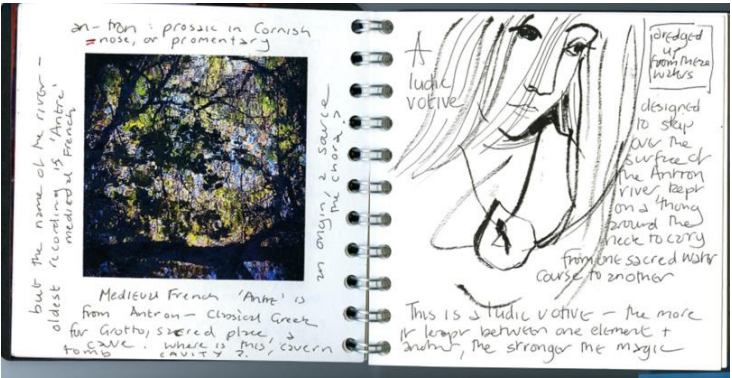 an-tron : prosaic in Cornish
= nose, or promentary
but the name of the river –
oldest recording is 'Antre'
medieval French
an origin & source
the 'chora'?
Medieval French 'Antre' is
from Antron – Classical Greek
for Grotto, sacred place, a
cave. Where is this, cavern
tomb CAVITY?
A
ludic
votive
dredged
up
from these
waters
designed
to skip
over the
surface of
the Antron
river kept
on a thong
around the
neck to carry
from one sacred water
course to another
This is a ludic votive – the more
it leaps between one element +
another, the stronger the magic